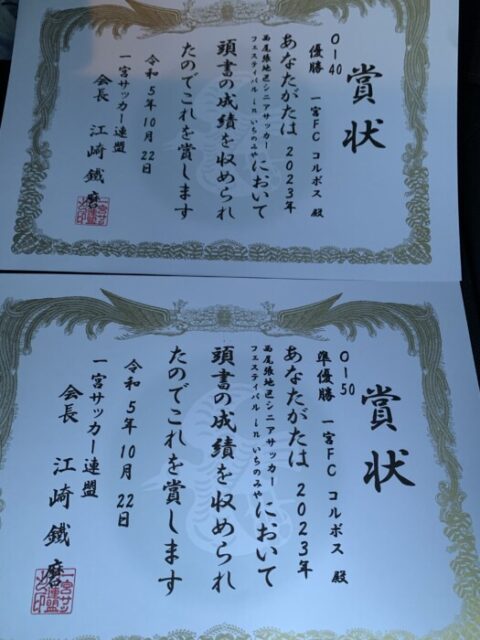 賞状
O-40
優勝 一宮FC コルボス 殿
あなたがたは 2023年
西尾張地区シニアサッカー
フェスティバル in いちのみやにおいて
頭書の成績を収められ
たのでこれを賞します
令和5年10月22日
一宮サッカー連盟
会長 江崎鐵磨
賞状
O-50
準優勝 一宮FC コルボス 殿
あなたがたは 2023年
西尾張地区シニアサッカー
フェスティバル in いちのみやにおいて
頭書の成績を収められ
たのでこれを賞します
令和5年10月22日
一宮サッカー連盟
会長 江崎鐵磨